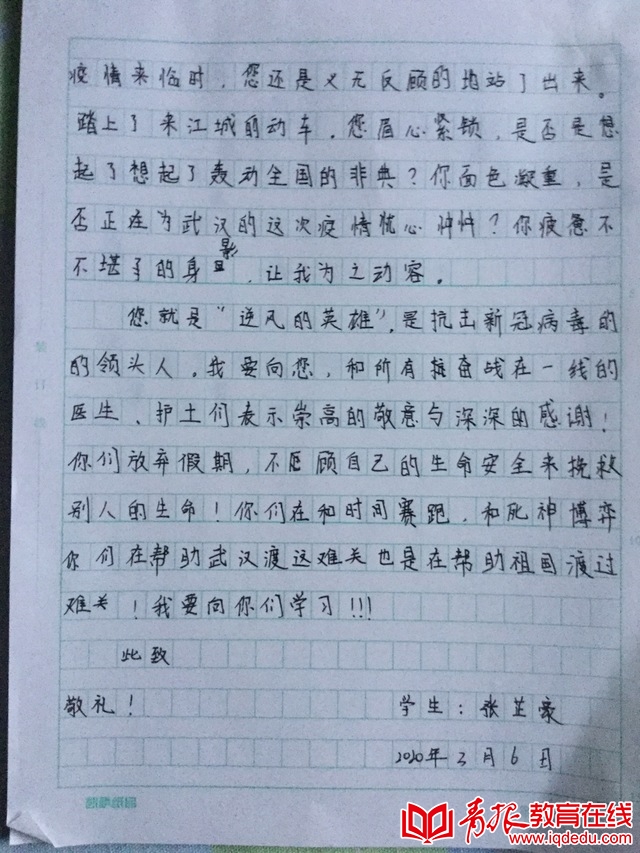 疫情来临时，您还是义无反顾的地站了出来。
踏上了来江城的动车。您眉心紧锁，是否是想
起了想起了轰动全国的非典？你面色凝重，是
否正在为武汉的这次疫情忧心忡忡？你疲惫不
不堪的身影，让我为之动容。
您就是“逆风的英雄”，是抗击新冠病毒的
的领头人。我要向您，和所有奋战在一线的
医生、护士们表示崇高的敬意与深深的感谢！
你们放弃假期，不顾自己的生命安全来挽救
别人的生命！你们在和时间赛跑，和死神博弈
你们在帮助武汉渡这难关也是在帮助祖国渡过
难关！我要向你们学习！！！
此致
敬礼！ 学生：张芷豪
2020年3月6日
青报教育在线
www.iqdedu.com